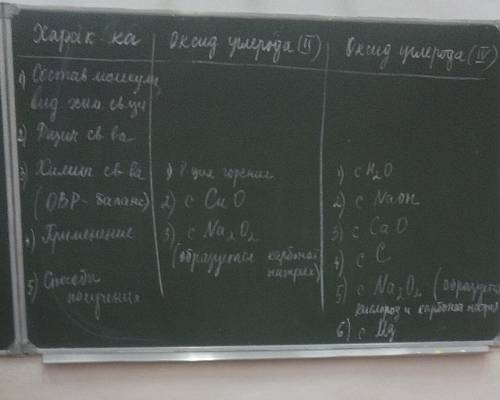 Харак-ка
Оксид углерода (II)
Оксид углерода (IV)
1) Состав молекулы
вид хим св-зи
2) Физич св-ва
3) Химич св-ва
(ОВР-баланс)
4) Применение
5) Способы
получения
1) Р-ция горения
2) с CuO
3) с Na2O2
(образуется карбонат
натрия)
1) с H2O
2) с NaOH
3) с CaO
4) с C
5) с Na2O2 (образуется
кислород и карбонат натрия
6) с Mg